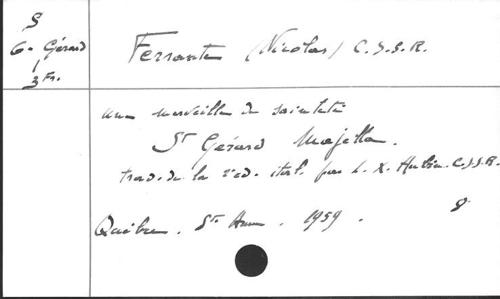 S
G. Gérard
3 Fr.
Ferrante (Nicolas) C.S.S.R.
une merveille de sainteté
St Gérard Majella.
trad. de la 2e éd. ital. par L. X. Aubin C.SS.R.
Québec. Ste Anne. 1959.
8